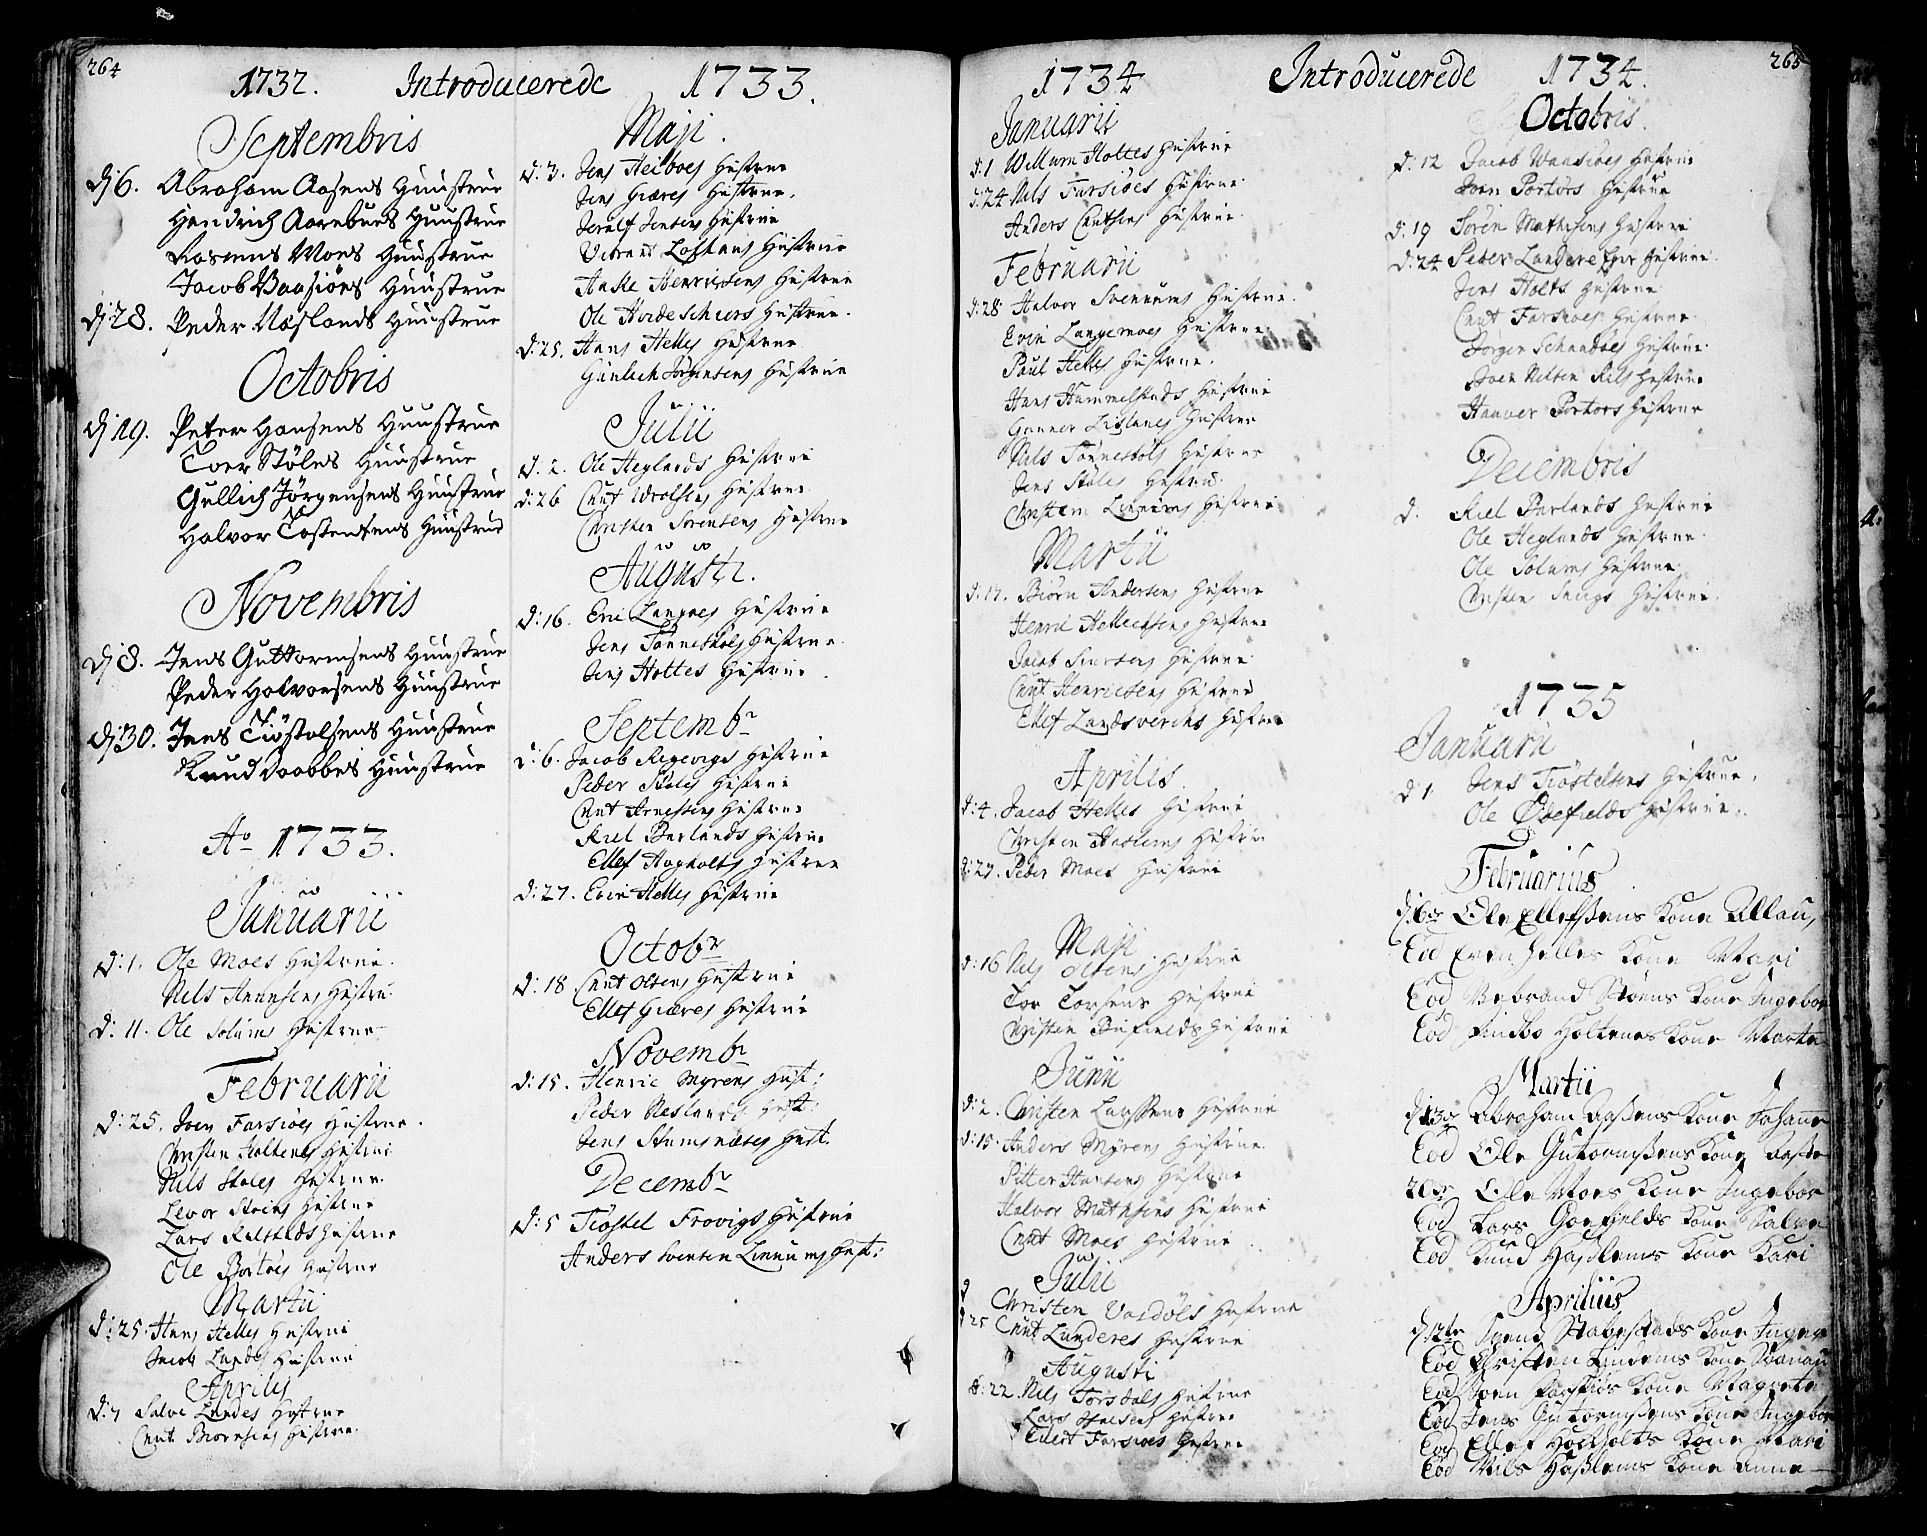 264
1732. Introducerede 1733.
Septembris
dj 6. Abraham Aasens Huustrue
Hendrich Aareburs Huustrue
Rasmus Moes Huustrue
Jacob Vaasiøes Huustrue
dj 28. Peder Næslands Huustrue
Octobris
dj 19. Peter Hansens Huustrue
Toer Støles Huustrue
Gullich Jörgensens Huustrue
Halvor Tostensens Huustrue
Novembris
dj 8. Jens Guttormsens Huustrue
Peder Halvorsens Huustrue
dj 30. Jens Tiöstolsens Huustrue
Knud Huustrue
Ao 1733.
Januarii
d: 1. Ole Moes Hustrue.
Nels Hansens Hustru.
d: 11. Ole Solums Hustrue
Februarii
d: 25. Joen Farsiøes Hustrue.
Christen Holtenes Hustrue
Nils Støles Hustrue.
Levor Hustrue
Lars Hustrue
Ole Hustrue
Martii
d: 25. Hans Helles Hustrue
Jacob Lundes Hustrue
Aprilis
d: 7 Salve Lundes Hustrue
Cnut Biørnsens Hustrue.
Maji.
d: 3. Jens Heiboes Hustrue
Jens Giæres Hustrue.
Jensens Hustrue
Vebrant Hustrue
Anke Henricsens Hustrue
Ole Hustrue.
d: 25. Hans Helles Hustrue
Gunlech Jørgensens Hustrue
Julii
d. 2. Ole Heglands Hustrue
d: 26 Cnut Hustrue
Christen Sørensens Hustrue
Augusti.
d: 16. Hustrue
Jens Tønnesøls Hustrue
Jens Holtes Hustrue.
Septembr
d: 6. Jacob Regevigs Hustrue
Peder Støles Hustrue
Cnut Arnesens Hustrue
Kiel Barlands Hustrue
Ellef Hogholts Hustrue
d: 27. Even Helles Hustrue
Octobr
d: 18. Cnut Olsens Hustrue
Ellef Giæres Hustrue
Novembr
d: 15. Henric Myrens Hust:
Peder Neslands Hust:
Jens Hust.
Decembr
d: 5 Tiøstel Frovigs Hustrue
Anders Svensen Linnums Hust:
265
1734 Introducerede 1734.
Januarii
d: 1 Willum Holtes Hustrue
d: 24 Nils Farsiøes Hustrue.
Anders Cnutsens Hustrue.
Februarii
d: 28. Halvor Svennums Hustrue.
Even Langemoes Hustrue.
Paul Helles Hustrue.
Hans Hammelstads Hustrue
Gunner Hustrue
Nils Tønnesøls Hustrue
Jens Støles Hustrue.
Christen Linnums Hustrue
Martii
d: 17. Biørn Andersens Hustrue
Henric Hustrue
Jacob Hustrue
Cnut Henricsens Hustrue
Ellef Landsvercks Hustrue
Aprilis
d: 4. Jacob Helles Hustrue
Christen Haslems Hustrue
d: 27. Peder Moes Hustrue
Maji
d: 16 Nels Olsens Hustrue
Tor Torsens Hustrue
Christen Hustrue
Junii
d: 2. Christen Larssens Hustrue
d: 15. Anders Myrens Hustrue.
Pitter Hansens Hustrue
Halvor Mathisens Hustrue
Cnut Moes Hustrue
Julii
d Christen Vasdöls Hustrue
d 25 Cnut Lunderes Hustrue
Augusti
d: 22. Nels Torsdals Hustrue
Lars Hustrue
Evert Farsiøes Hustrue
Octobris.
d: 12 Jacob Vaasiøes Hustrue
Sven Portörs Hustrue
d: 19 Sören Mathisens Hustrue
d: 24 Peder Hustrue.
Jens Holts Hustrue
Cnut Farsiøes Hustrue.
Jørgen Hustrue.
Joen Nilsen Kils Hustrue
Hustrue
Decembris
d. Kiel Barlands Hustrue
Ole Heglands Hustrue.
Ole Solums Hustrue.
Christen Hustrue.
1735
Januarii
d 1 Jens Tiøstelsens Hustrue.
Ole Ødefields Hustrue.
Februarius
d. 6te Ole Ellefssens Kone Allau,
Eod Even Helles Kone Mari
Eod Vebrand Kone Ingebor
Eod Holtenes Kone Marte
Martii
d. 13de Abraham Aasens Kone Johanne
Eod Ole Gutormsens Kone Aaste
20de Ole Moes Kone Ingebor
Eod Lars Kone Salve
Eod Knud Haslems Kone Kari
Aprilius
d. 12te Svend Stabestads Kone
Eod Christen Lindems Kone
Eod Joen Farsiøs Kone Magrete
Eod Jens Gutormsens Kone Ingebor
Eod Ellef Hockholts Kone Mari
Eod Nils Haslems Kone Anne